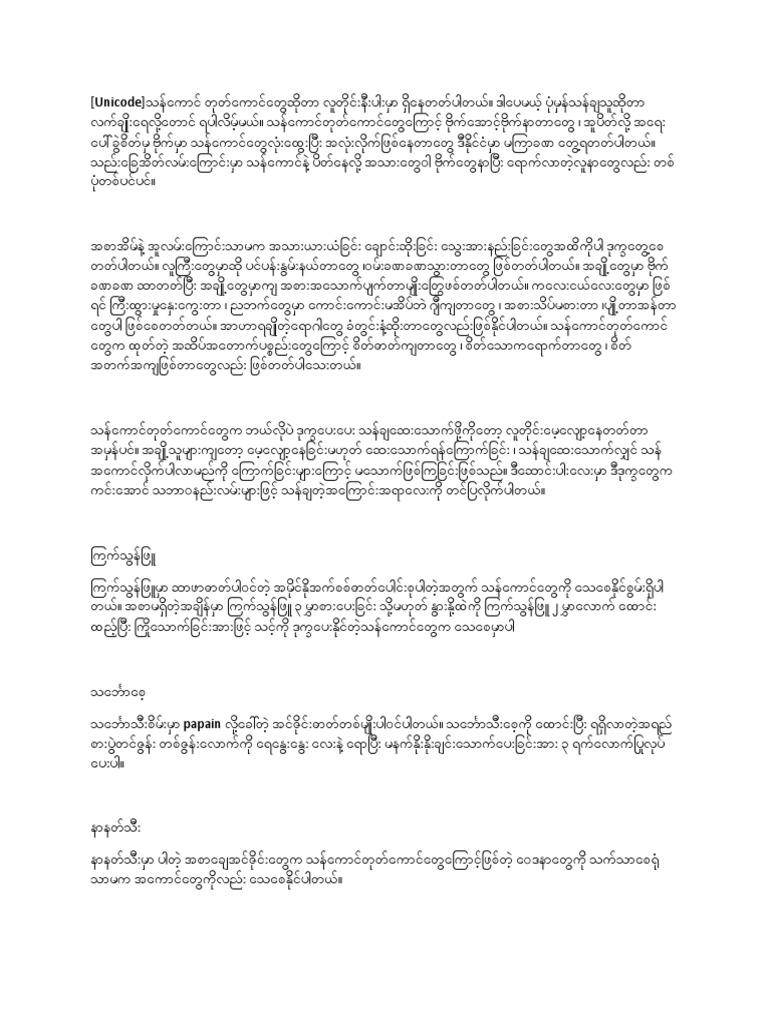 [Unicode]သန်ကောင် တုတ်ကောင်တွေဆိုတာ လူတိုင်းနီးပါးမှာ ရှိနေတတ်ပါတယ်။ ဒါပေမယ့် ပုံမှန်သန်ချသူဆိုတာ
လက်ချိုးရေလို့တောင် ရပါလိမ့်မယ်။ သန်ကောင်တုတ်ကောင်တွေကြောင့် ဗိုက်အောင့်ဗိုက်နာတာတွေ ၊ အူပိတ်လို့ အရေး
ပေါ်ခွဲစိတ်မှ ဗိုက်မှာ သန်ကောင်တွေလုံးထွေးပြီး အလုံးလိုက်ဖြစ်နေတာတွေ ဒီနိုင်ငံမှာ မကြာခဏ တွေ့ရတတ်ပါတယ်။
သည်းခြေအိတ်လမ်းကြောင်းမှာ သန်ကောင်နဲ့ ပိတ်နေလို့ အသားတွေဝါ ဗိုက်တွေနာပြီး ရောက်လာတဲ့လူနာတွေလည်း တစ်
ပုံတစ်ပင်ပင်။
အစာအိမ်နဲ့ အူလမ်းကြောင်းသာမက အသားယားယံခြင်း ချောင်းဆိုးခြင်း သွေးအားနည်းခြင်းတွေအထိကိုပါ ဒုက္ခတွေ့စေ
တတ်ပါတယ်။ လူကြီးတွေမှာဆို ပင်ပန်းနွမ်းနယ်တာတွေ ၊ဝမ်းခဏခဏသွားတာတွေ ဖြစ်တတ်ပါတယ်။ အချို့တွေမှာ ဗိုက်
ခဏခဏ ဆာတတ်ပြီး အချို့တွေမှာကျ အစားအသောက်ပျက်တာမျိုးတွေဖြစ်တတ်ပါတယ်။ ကလေးငယ်လေးတွေမှာ ဖြစ်
ရင် ကြီးထွားမှုနှေးကွေးတာ ၊ ညဘက်တွေမှာ ကောင်းကောင်းမအိပ်ဘဲ ဂျီကျတာတွေ ၊ အစားသိပ်မစားတာ ၊ပျို့တာအန်တာ
တွေပါ ဖြစ်စေတတ်တယ်။ အာဟာရချို့တဲ့ရောဂါတွေ ခံတွင်းနံ့ဆိုးတာတွေလည်းဖြစ်နိုင်ပါတယ်။ သန်ကောင်တုတ်ကောင်
တွေက ထုတ်တဲ့ အဆိပ်အတောက်ပစ္စည်းတွေကြောင့် စိတ်ဓာတ်ကျတာတွေ ၊ စိတ်သောကရောက်တာတွေ ၊ စိတ်
အတက်အကျဖြစ်တာတွေလည်း ဖြစ်တတ်ပါသေးတယ်။
သန်ကောင်တုတ်ကောင်တွေက ဘယ်လိုပဲ ဒုက္ခပေးပေး သန်ချဆေးသောက်ဖို့ကိုတော့ လူတိုင်းမေ့လျော့နေတတ်တာ
အမှန်ပင်။ အချို့သူများကျတော့ မေ့လျော့နေခြင်းမဟုတ် ဆေးသောက်ရန်ကြောက်ခြင်း ၊ သန်ချဆေးသောက်လျှင် သန်
အကောင်လိုက်ပါလာမည်ကို ကြောက်ခြင်းများကြောင့် မသောက်ဖြစ်ကြခြင်းဖြစ်သည်။ ဒီဆောင်းပါးလေးမှာ ဒီဒုက္ခတွေက
ကင်းအောင် သဘာဝနည်းလမ်းများဖြင့် သန်ချတဲ့အကြောင်းအရာလေးကို တင်ပြလိုက်ပါတယ်။
ကြက်သွန်ဖြူ
ကြက်သွန်ဖြူမှာ ဆာဖာဓာတ်ပါဝင်တဲ့ အမိုင်နိုအက်စစ်ဓာတ်ပေါင်းစုပါတဲ့အတွက် သန်ကောင်တွေကို သေစေနိုင်စွမ်းရှိပါ
တယ်။ အစာမရှိတဲ့အချိန်မှာ ကြက်သွန်ဖြူ ၃ မွှာစားပေးခြင်း သို့မဟုတ် နွားနို့ထဲကို ကြက်သွန်ဖြူ ၂ မွှာလောက် ထောင်း
ထည့်ပြီး ကြိုသောက်ခြင်းအားဖြင့် သင့်ကို ဒုက္ခပေးနိုင်တဲ့သန်ကောင်တွေက သေစေမှာပါ
သင်္ဘောစေ့
သင်္ဘောသီးစိမ်းမှာ papain လို့ခေါ်တဲ့ အင်ဇိုင်းဓာတ်တစ်မျိုးပါဝင်ပါတယ်။ သင်္ဘောသီးစေ့ကို ထောင်းပြီး ရရှိလာတဲ့အရည်
စားပွဲတင်ဇွန်း တစ်ဇွန်းလောက်ကို ရေနွေးနွေး လေးနဲ့ ရောပြီး မနက်နိုးနိုးချင်းသောက်ပေးခြင်းအား ၃ ရက်လောက်ပြုလုပ်
ပေးပါ။
နာနတ်သီး
နာနတ်သီးမှာ ပါတဲ့ အစာချေအင်ဇိုင်းတွေက သန်ကောင်တုတ်ကောင်တွေကြောင့်ဖြစ်တဲ့ ဝေဒနာတွေကို သက်သာစေရုံ
သာမက အကောင်တွေကိုလည်း သေစေနိုင်ပါတယ်။